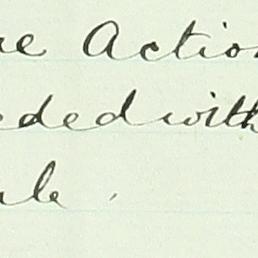 re Action
eded with
ule.